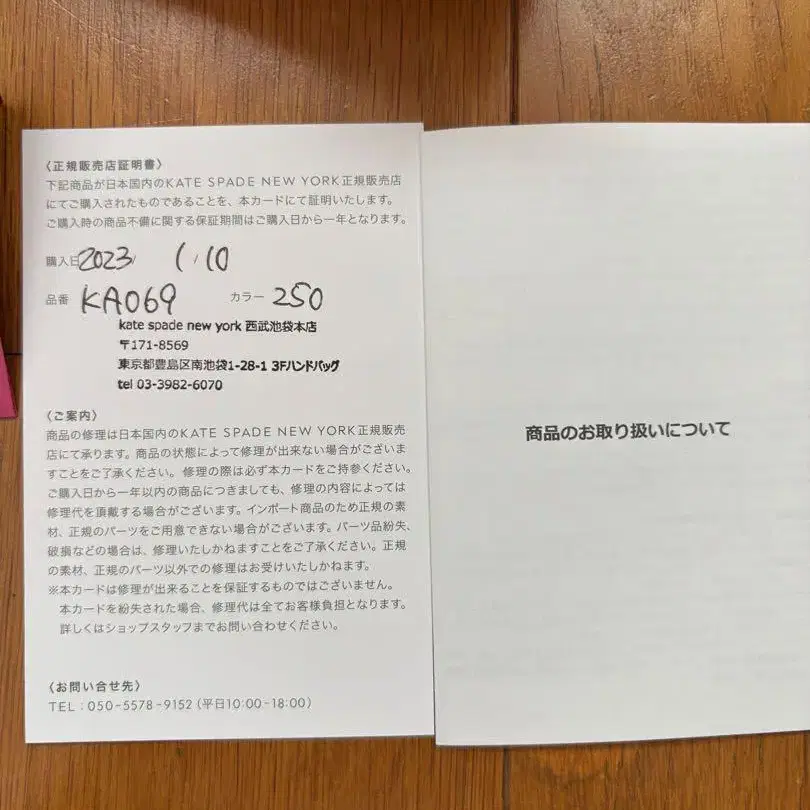 〈正規販売店証明書〉
下記商品が日本国内のKATE SPADE NEW YORK正規販売店
にてご購入されたものであることを、本カードにて証明いたします。
ご購入時の商品不備に関する保証期間はご購入日から一年となります。
購入日 2023/ 1/10
品番 KA069 カラー 250
kate spade new york 西武池袋本店
〒171-8569
東京都豊島区南池袋1-28-1 3Fハンドバッグ
tel 03-3982-6070
〈ご案内〉
商品の修理は日本国内のKATE SPADE NEW YORK正規販売
店にて承ります。商品の状態によって修理が出来ない場合がございま
すことをご了承ください。修理の際は必ず本カードをご持参ください。
ご購入日から一年以内の商品につきましても、修理の内容によっては
修理代を頂戴する場合がございます。インポート商品のため正規の素
材、正規のパーツをご用意できない場合がございます。パーツ品紛失、
破損などの場合は、修理いたしかねますことをご了承ください。正規
の素材、正規のパーツ以外での修理はお受けいたしかねます。
※本カードは修理が出来ることを保証するものではございません。
本カードを紛失された場合、修理代は全てお客様負担となります。
詳しくはショップスタッフまでお問い合わせください。
〈お問い合せ先〉
TEL : 050-5578-9152 (平日10:00-18:00)
商品のお取り扱いについて